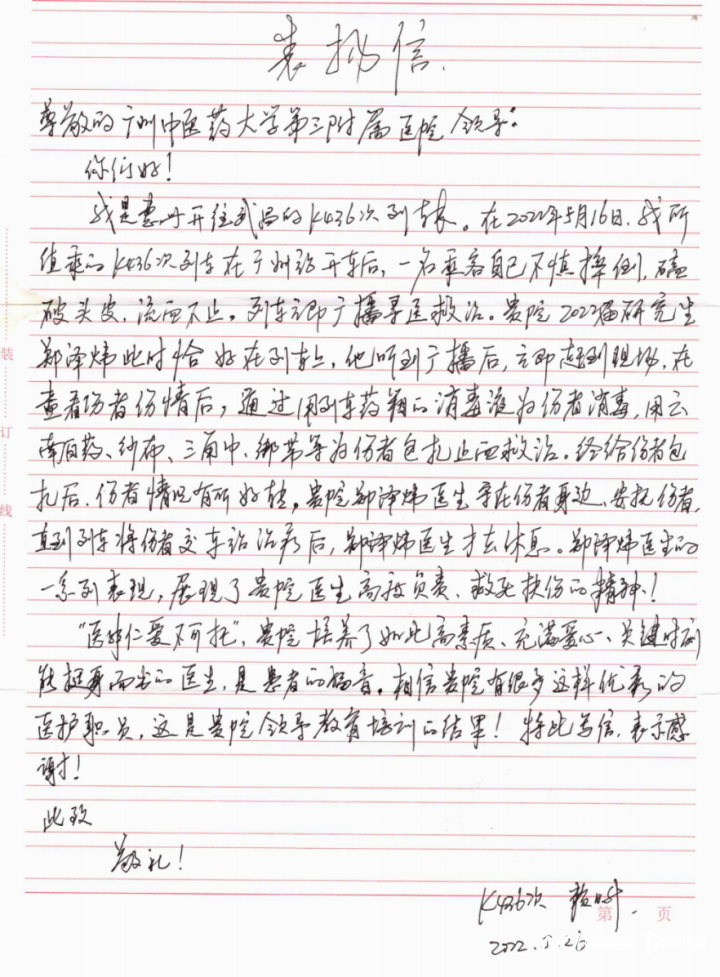 表扬信
尊敬的广州中医药大学第三附属医院领导:
你们好!
我是惠州开往武昌的K436次列车长。在2022年5月16日,我所
值乘的K436次列车在广州站开车后,一名乘客自己不慎摔倒,磕
破头皮,流血不止。列车立即广播寻医救治。贵院2022届研究生
郑泽炜此时恰好在列车上,他听到广播后,立即赶到现场,在
查看伤者伤情后,通过用列车药箱的消毒液为伤者消毒,用云
南白药、纱布、三角巾、绑带等为伤者包扎止血救治。终给伤者包
扎后,伤者情况有所好转。贵院郑泽炜医生守在伤者身边、安抚伤者,
直到列车将伤者交车站治疗后,郑泽炜医生才去休息。郑泽炜医生的
一系列表现,展现了贵院医生高敬负责、救死扶伤的精神!
“医非仁爱不可托”,贵院培养了如此高素质、充满爱心、关键时刻
能挺身而出的医生,是患者的福音。相信贵院有很多这样优秀的
医护职员,这是贵院领导教育培训的结果!特此写信,表示感
谢!
此致
敬礼!
K436次
第 页
2022.5.26
装
订
线